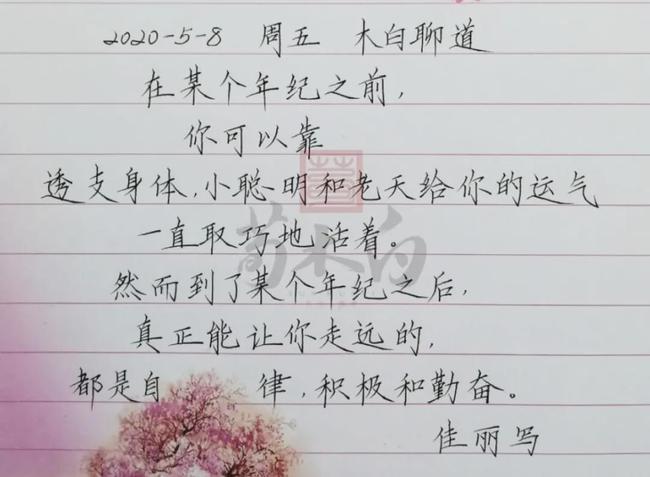 2020-5-8 周五 木白聊道
在某个年纪之前,
你可以靠
透支身体,小聪明和老天给你的运气
一直取巧地活着。
然而到了某个年纪之后,
真正能让你走远的,
都是自 律,积极和勤奋。
佳丽写